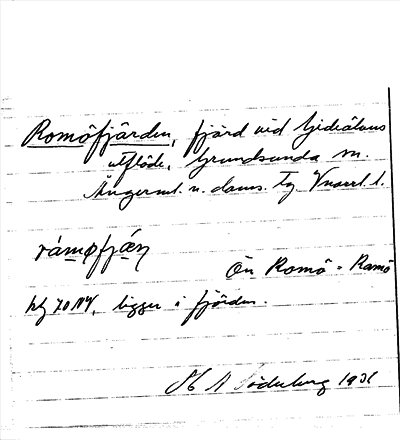 Romöfjärden, fjärd vid Gideälvens
utflöde, Grundsunda sn.
Ångerml. n. doms. tg. Vnorrl. l.
råmøfjæṇ
Ön Romö - Ramö
blj 70 NV, ligger i fjärden.
Söderberg 1931